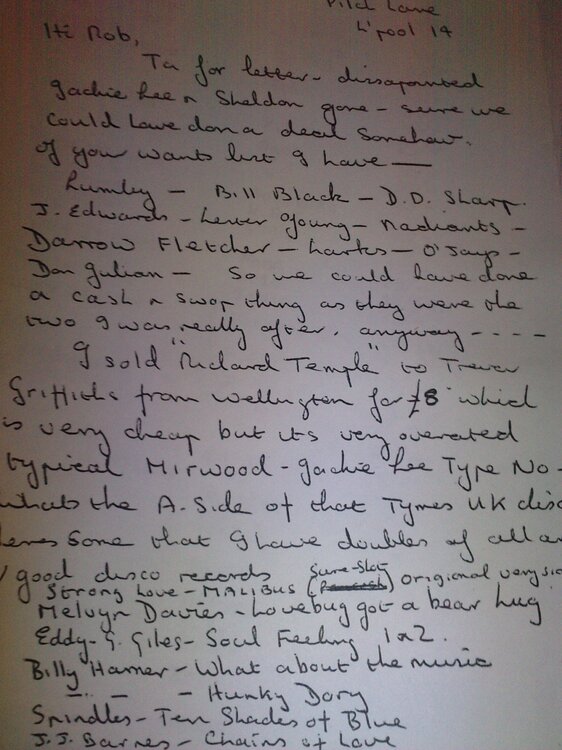 Pilch Lane
L'pool 14
Hi Rob,
Ta for letter - dissapointed
Jackie Lee n Sheldon gone - sure we
could have don a deal somehow.
Of your wants list I have —
Lumley - Bill Black - D.D. Sharp.
J. Edwards - Lester Young - Radiants -
Darrow Fletcher - Larks - O'Jays -
Don Julian - So we could have done
a cash n swop thing as they were the
two I was really after, anyway - - - -
I sold "Richard Temple" to Trevor
Griffiths from Wellington for £8 which
is very cheap but its very overated
typical Mirwood - Jackie Lee Type No -
whats the A. Side of that Tymes UK disc
Heres some that I have doubles of all a
good disco records
Strong Love - MALIBUS (Sure-Shot) Original versi
Melvyn Davies - Lovebug got a bear hug
Eddy. G. Giles - Soul Feeling 1 n 2.
Billy Hamer - What about the music
-- . - - Hunky Dory
Spindles - Ten Shades of Blue
J.J. Barnes - Chains of Love